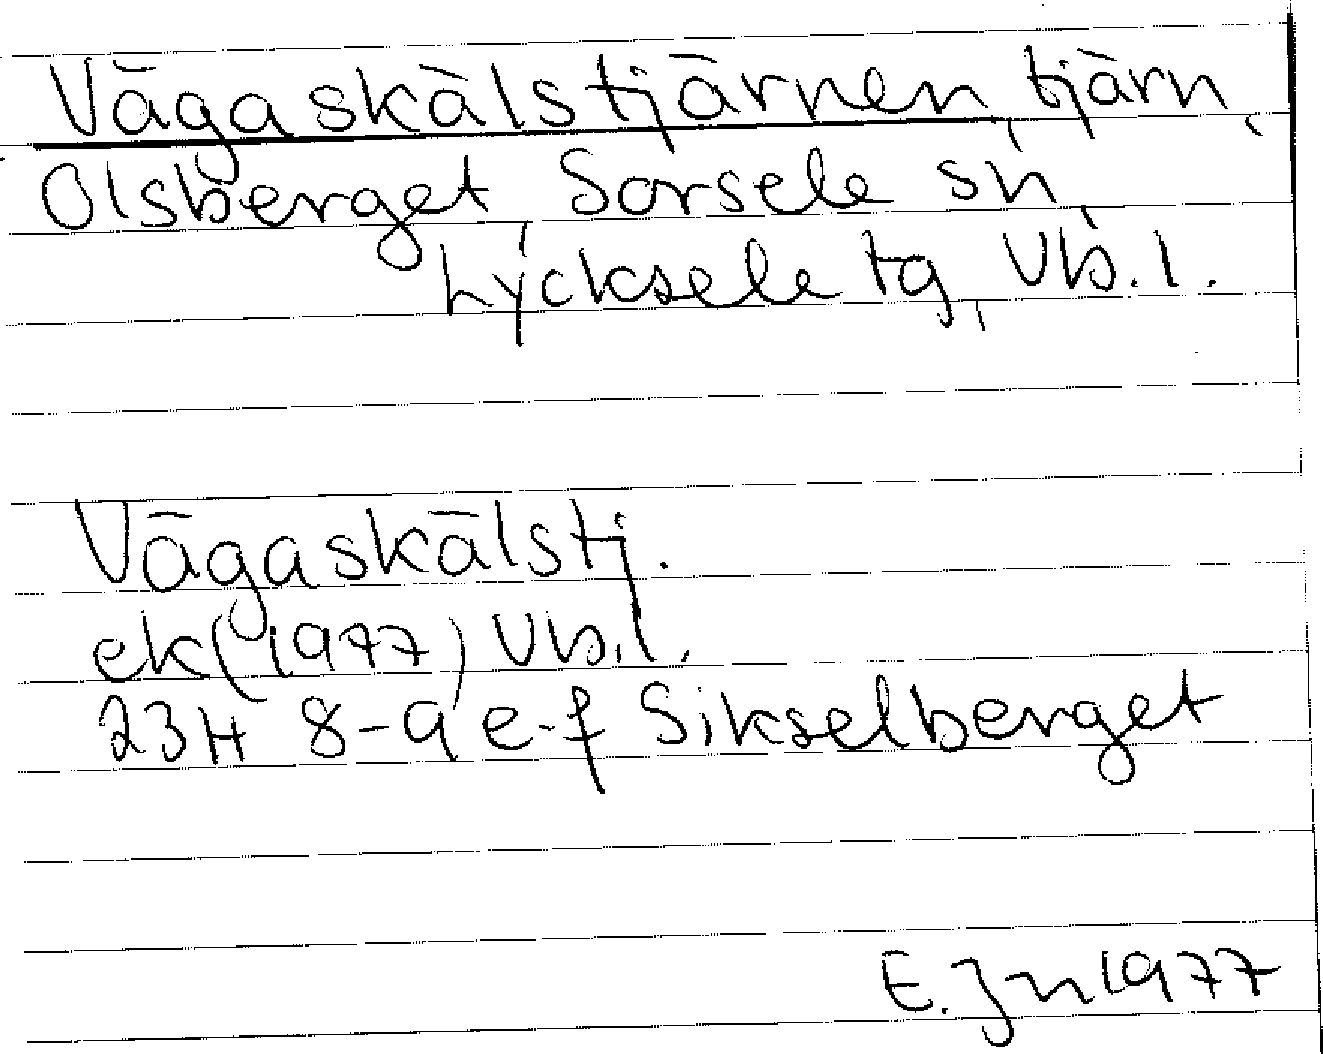 Vägaskälstjärnen, tjärn,
Olsberget Sorsele sn,
Lycksele tg, Vb.l.
Vägaskälstj.
ek(1977) Vb.l.
23H 8-9 e-f Sikselberget
E. Jn 1977